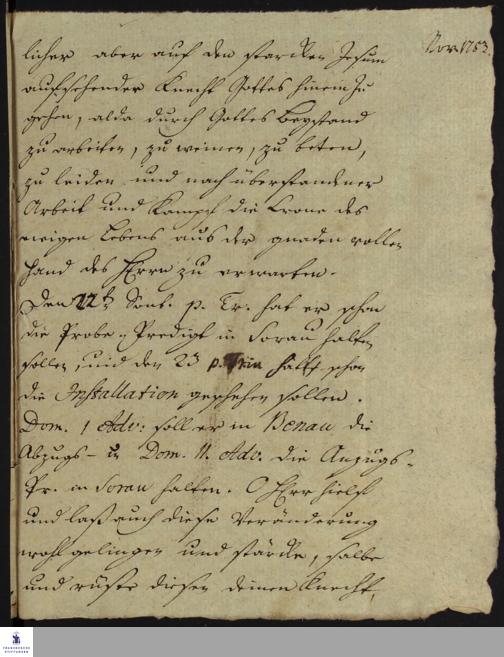 Nov. 1753.
licher aber auf den starcken Jesum
aufsehender Knecht Gottes hinein zu
gehen, alda durch Gottes Beystand
zu arbeiten, zu weinen, zu beten,
zu leiden und nach überstandener
Arbeit und Kampf die Crone des
ewigen Lebens aus der gnaden vollen
Hand des Herrn zu erwarten.
Den 22t Sont. p. Tr. hat er schon
die Probe-Predigt in Sorau halten
sollen, und den 23 p. Trin hätte schon
die Installation geschehen sollen.
Dom. 1 Adv: soll er in Benau die
Abzugs- u Dom. II. Adv. die Anzugs-
Pr. in Sorau halten. O Herr hielf
und laß auch diese Veränderung
wohl gelingen und stärcke, salbe
und rüste diesen deinen Knecht,
FRANCKESCHE
STIFTUNGEN